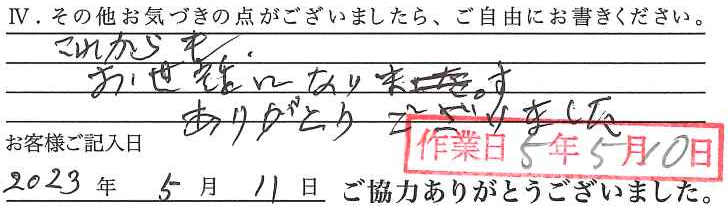 Ⅳ.その他お気づきの点がございましたら、ご自由にお書きください。
これからも
お世話になります
ありがとうございました
お客様ご記入日
作業日 5年5月10日
2023年 5月 11日 ご協力ありがとうございました。